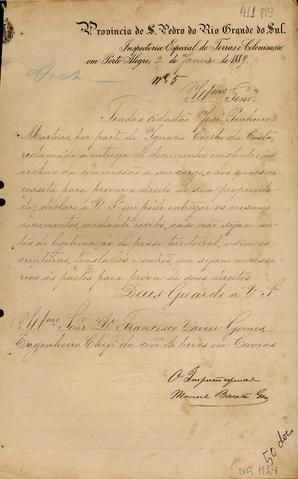 411 883
Provincia de S. Pedro do Rio Grande do Sul.
Inspectoria Especial de Terras e Colonisação
em Porto Alegre, 3 de Janeiro de 1889.
Nº 5
Illmo Senr.
Tendo o cidadão José Pinheiro
Martins, por parte de Ignacio Coelho da Costa,
reclamado a entrega de documentos existentes no
archivo da commissão a seu cargo, e dos quaes ne-
cessita para provar o direito de sua proprieda-
de, declaro a V. Sª que póde entregar os mesmos
documentos, mediante recibo, caso não sejam au-
tos de legitimação de posse territorial, e sim es-
cripturas, traslados e outros que sejam necessa-
rios ás partes para prova de seus direitos.
Deus Guarde á V. Sª
Illmo Senr Dr Francisco Xavier Gomes
Engenheiro Chefe da comm. de terras em Caxias
O Inspector especial
Manoel Barata Góes
50 doc.
1924